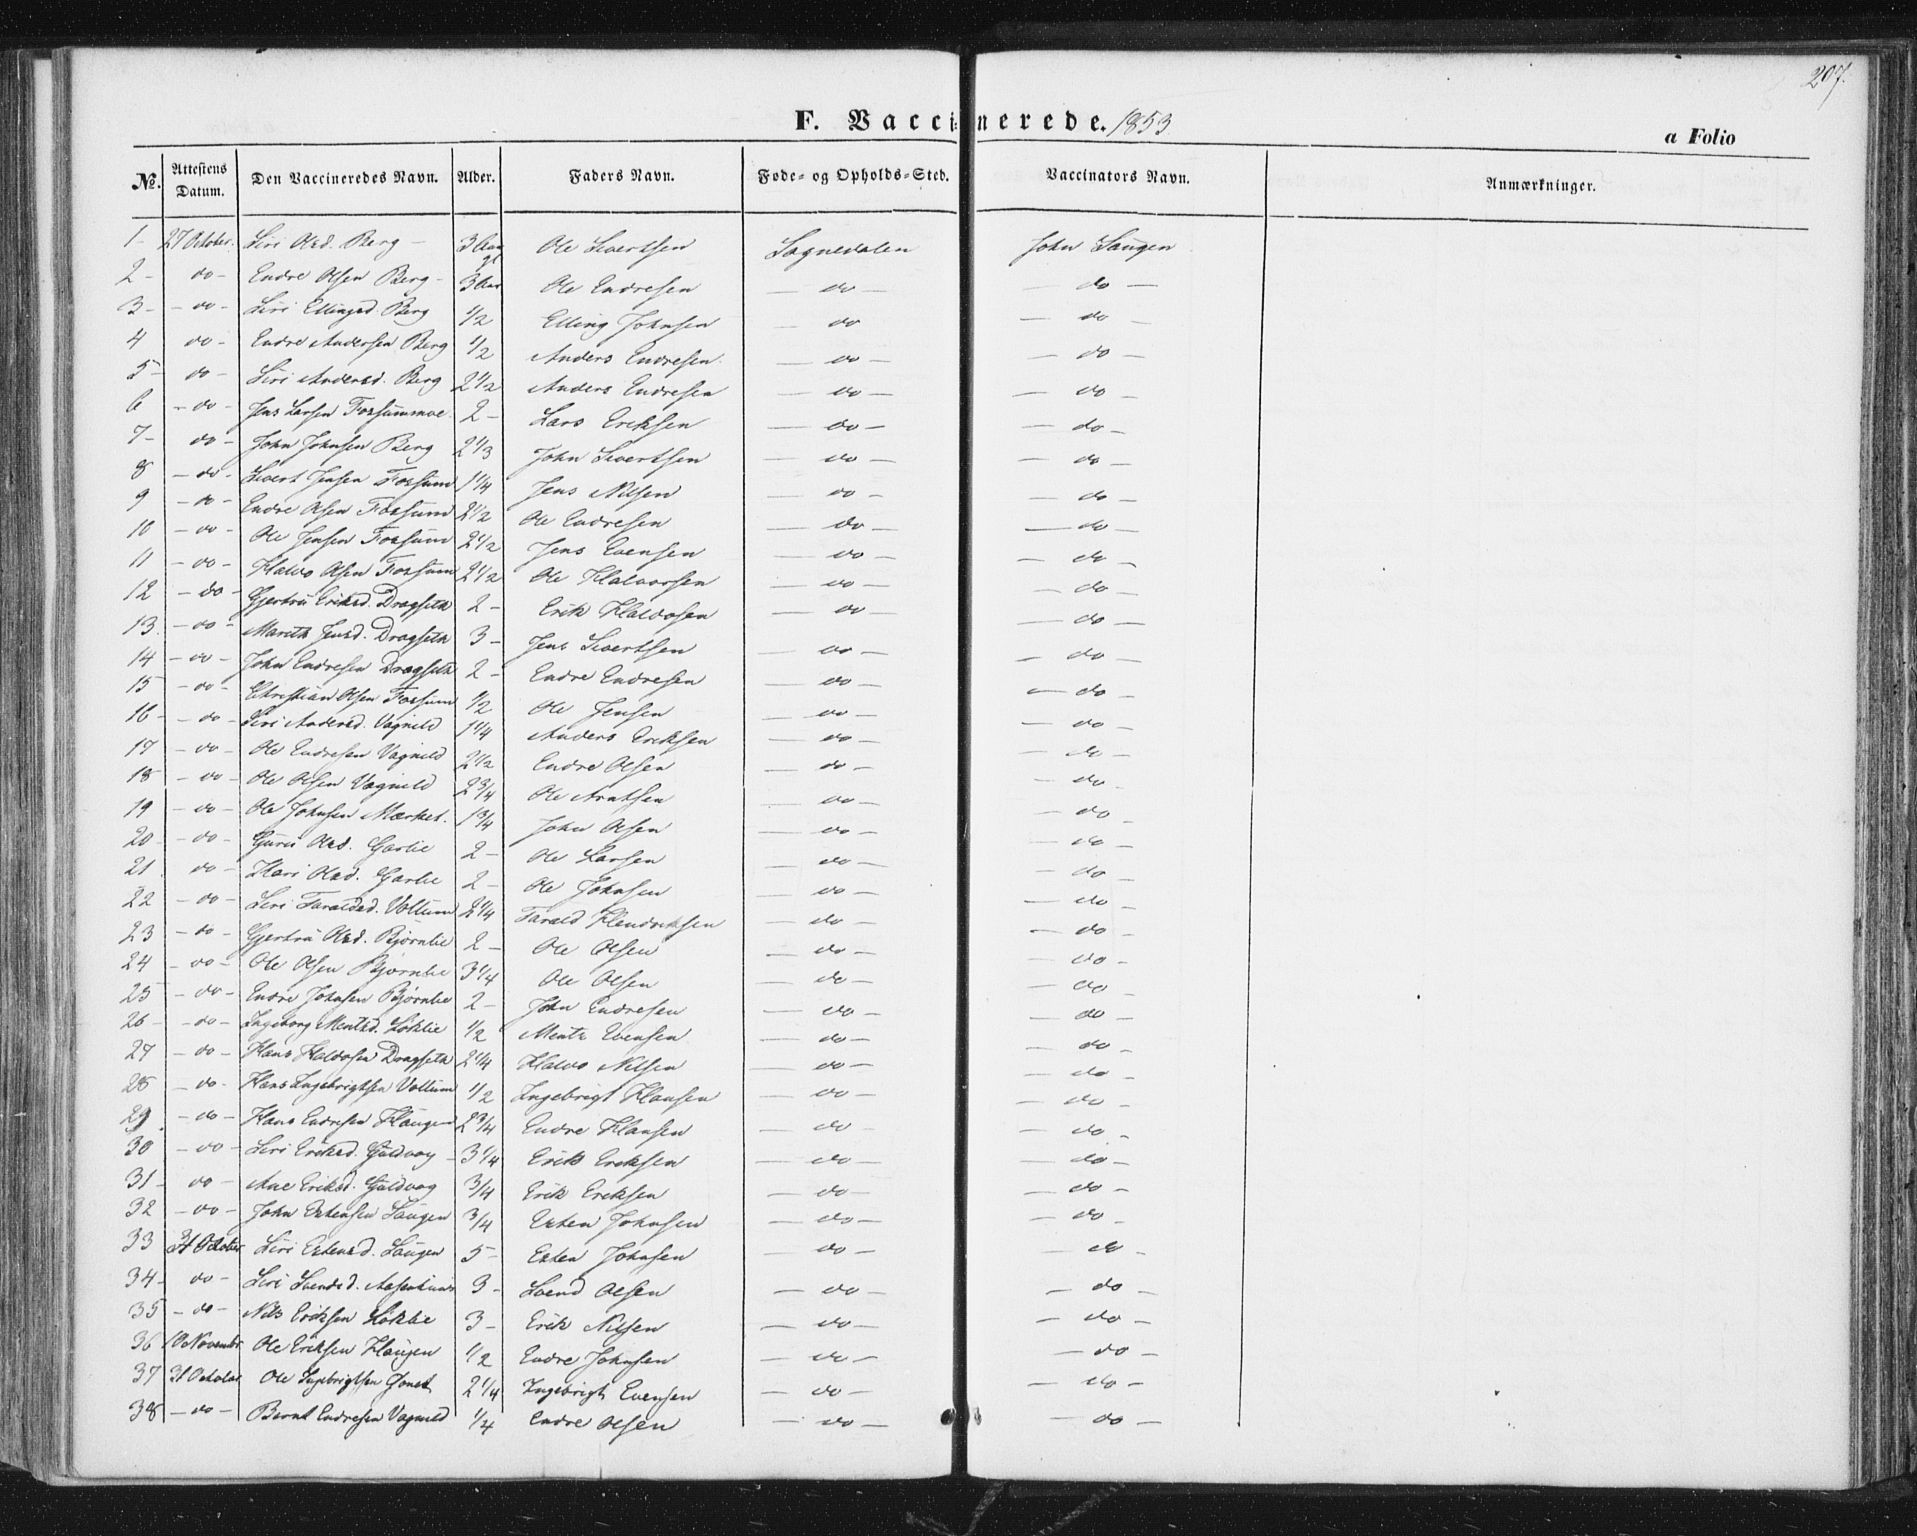 207.
F. Vaccinerede. 1853
a Folio
No. Attestens Datum. Den Vaccineredes Navn. Alder. Faders Navn. Føde- og Opholds-Sted. Vaccinators Navn. Anmærkninger.
1- 27 October. Siri Olsd. Berg - 3 Aar gl Ole Sivertsen Sognedalen John Haugen
2- do - Endre Olsen Berg - 3 Aar Ole Endresen - do - - do -
3- - do - Siri Ellingsd. Berg 1/2 Elling Johnsen - do - do -
4 do - Endre Andersen Berg 1/2 Anders Endresen. - do - - do -
5- - do - Siri Andersd. Berg 2 1/2 Anders Endresen - do - - do -
6 - do - Jens Larsen Forsummoe. 2 - Lars Eriksen - do - - do -
7- do - John Johnsen Berg 2 1/3 John Sivertsen - do - - do -
8 - do - Sivert Jensen Forsum 1 1/4 Jens Nilsen - do - - do -
9 - do - Endre Olsen Forsum 2 1/2 Ole Endresen - do - - do -
10 - do - Ole Jensen Forsum 2 1/2 Jens Evensen - do - - do -
11 - do - Haldo Olsen Forsum 2 1/2 Ole Haldorsen - do - - do -
12 - do - Gjertru Eriksd. Dragseth 2 - Erik Haldosen - do - - do -
13. - do - Marith Jensd. Dragseth 3 - Jens Sivertsen - do - - do -
14 - do - John Endresen Dragseth 2 - Endre Endresen - do - - do -
15 - do - Christian Olsen Forsum 1/2 Ole Jensen - do - - do -
16 - do Siri Andersd. Vagnild 1 1/4 Anders Eriksen - do - - do -
17 - do - Ole Endresen Vagnild 2 1/2 Endre Olsen - do - - do -
18 - do - Ole Olsen Vagnild 2 3/4 Ole Arntsen - do - - do -
19 - do - Ole Johnsen Mærket. 1 3/4 John Olsen - do - - do -
20 - do - Guru Olsd. Garlie 2 - Ole Larsen - do - - do -
21 do - Kari Olsd. Garlie 2 - Ole Johnsen - do - - do -
22 - do - Siri Faraldsd. Vollum 2 1/4 Farald Hendriksen - do - - do -
23 - do - Gjertru Olsd. Bjørnlie 2 - Ole Olsen - do - - do -
24 - do - Ole Olsen Bjørnlie 3 1/4 Ole Olsen - do - - do -
25 - do - Endre Johnsen Bjørnlie 2 - John Endresen - do - - do -
26 - - do - Ingeborg Mentsd. Løklie 1/2 Mentz Evensen - do - - do -
27 - do - Hans Haldosen Dragseth 2 1/4 Haldo Nilsen - do - - do -
28 - do - Hans Ingebrigtsen Vollum 1/2 Ingebrigt Hansen - do - - do -
29 - do - Hans Endresen Haugen 2 3/4 Endre Hansen - do - - do -
30 - do - Siri Eriksd. Guldvog - 3 1/4 Erik Eriksen - do - - do -
31 - do - Ane Eriksd. Guldvog 3/4 Erik Eriksen - do - - do -
32 - do - John Estensen Haugen 3/4 Esten Johnsen - do - - do -
33 31 October Siri Estensd. Haugen 5 - Esten Johnsen - do - - do -
34 - do - Siri Svendsd. 3 - Svend Olsen - do - - do -
35 - do - Nils Eriksen Løklie 3 - Erik Nilsen - do - - do -
36 10 Novembr. Ole Eriksen Haugen 1/2 Endre Johnsen - do - - do -
37 31 October Ole Ingebrigtsen 2 1/4 Ingebrigt Evensen - do - - do -
38 - do - Bernt Endresen Vagnild 1/4 Endre Olsen - do - - do -